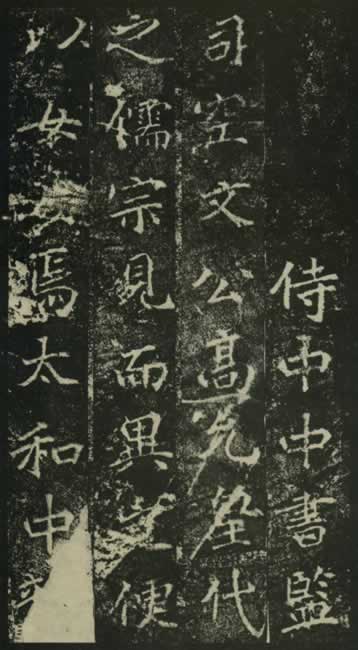 侍中中書監
司空文公高允代
之儒宗見而異之便
以女妻焉太和中